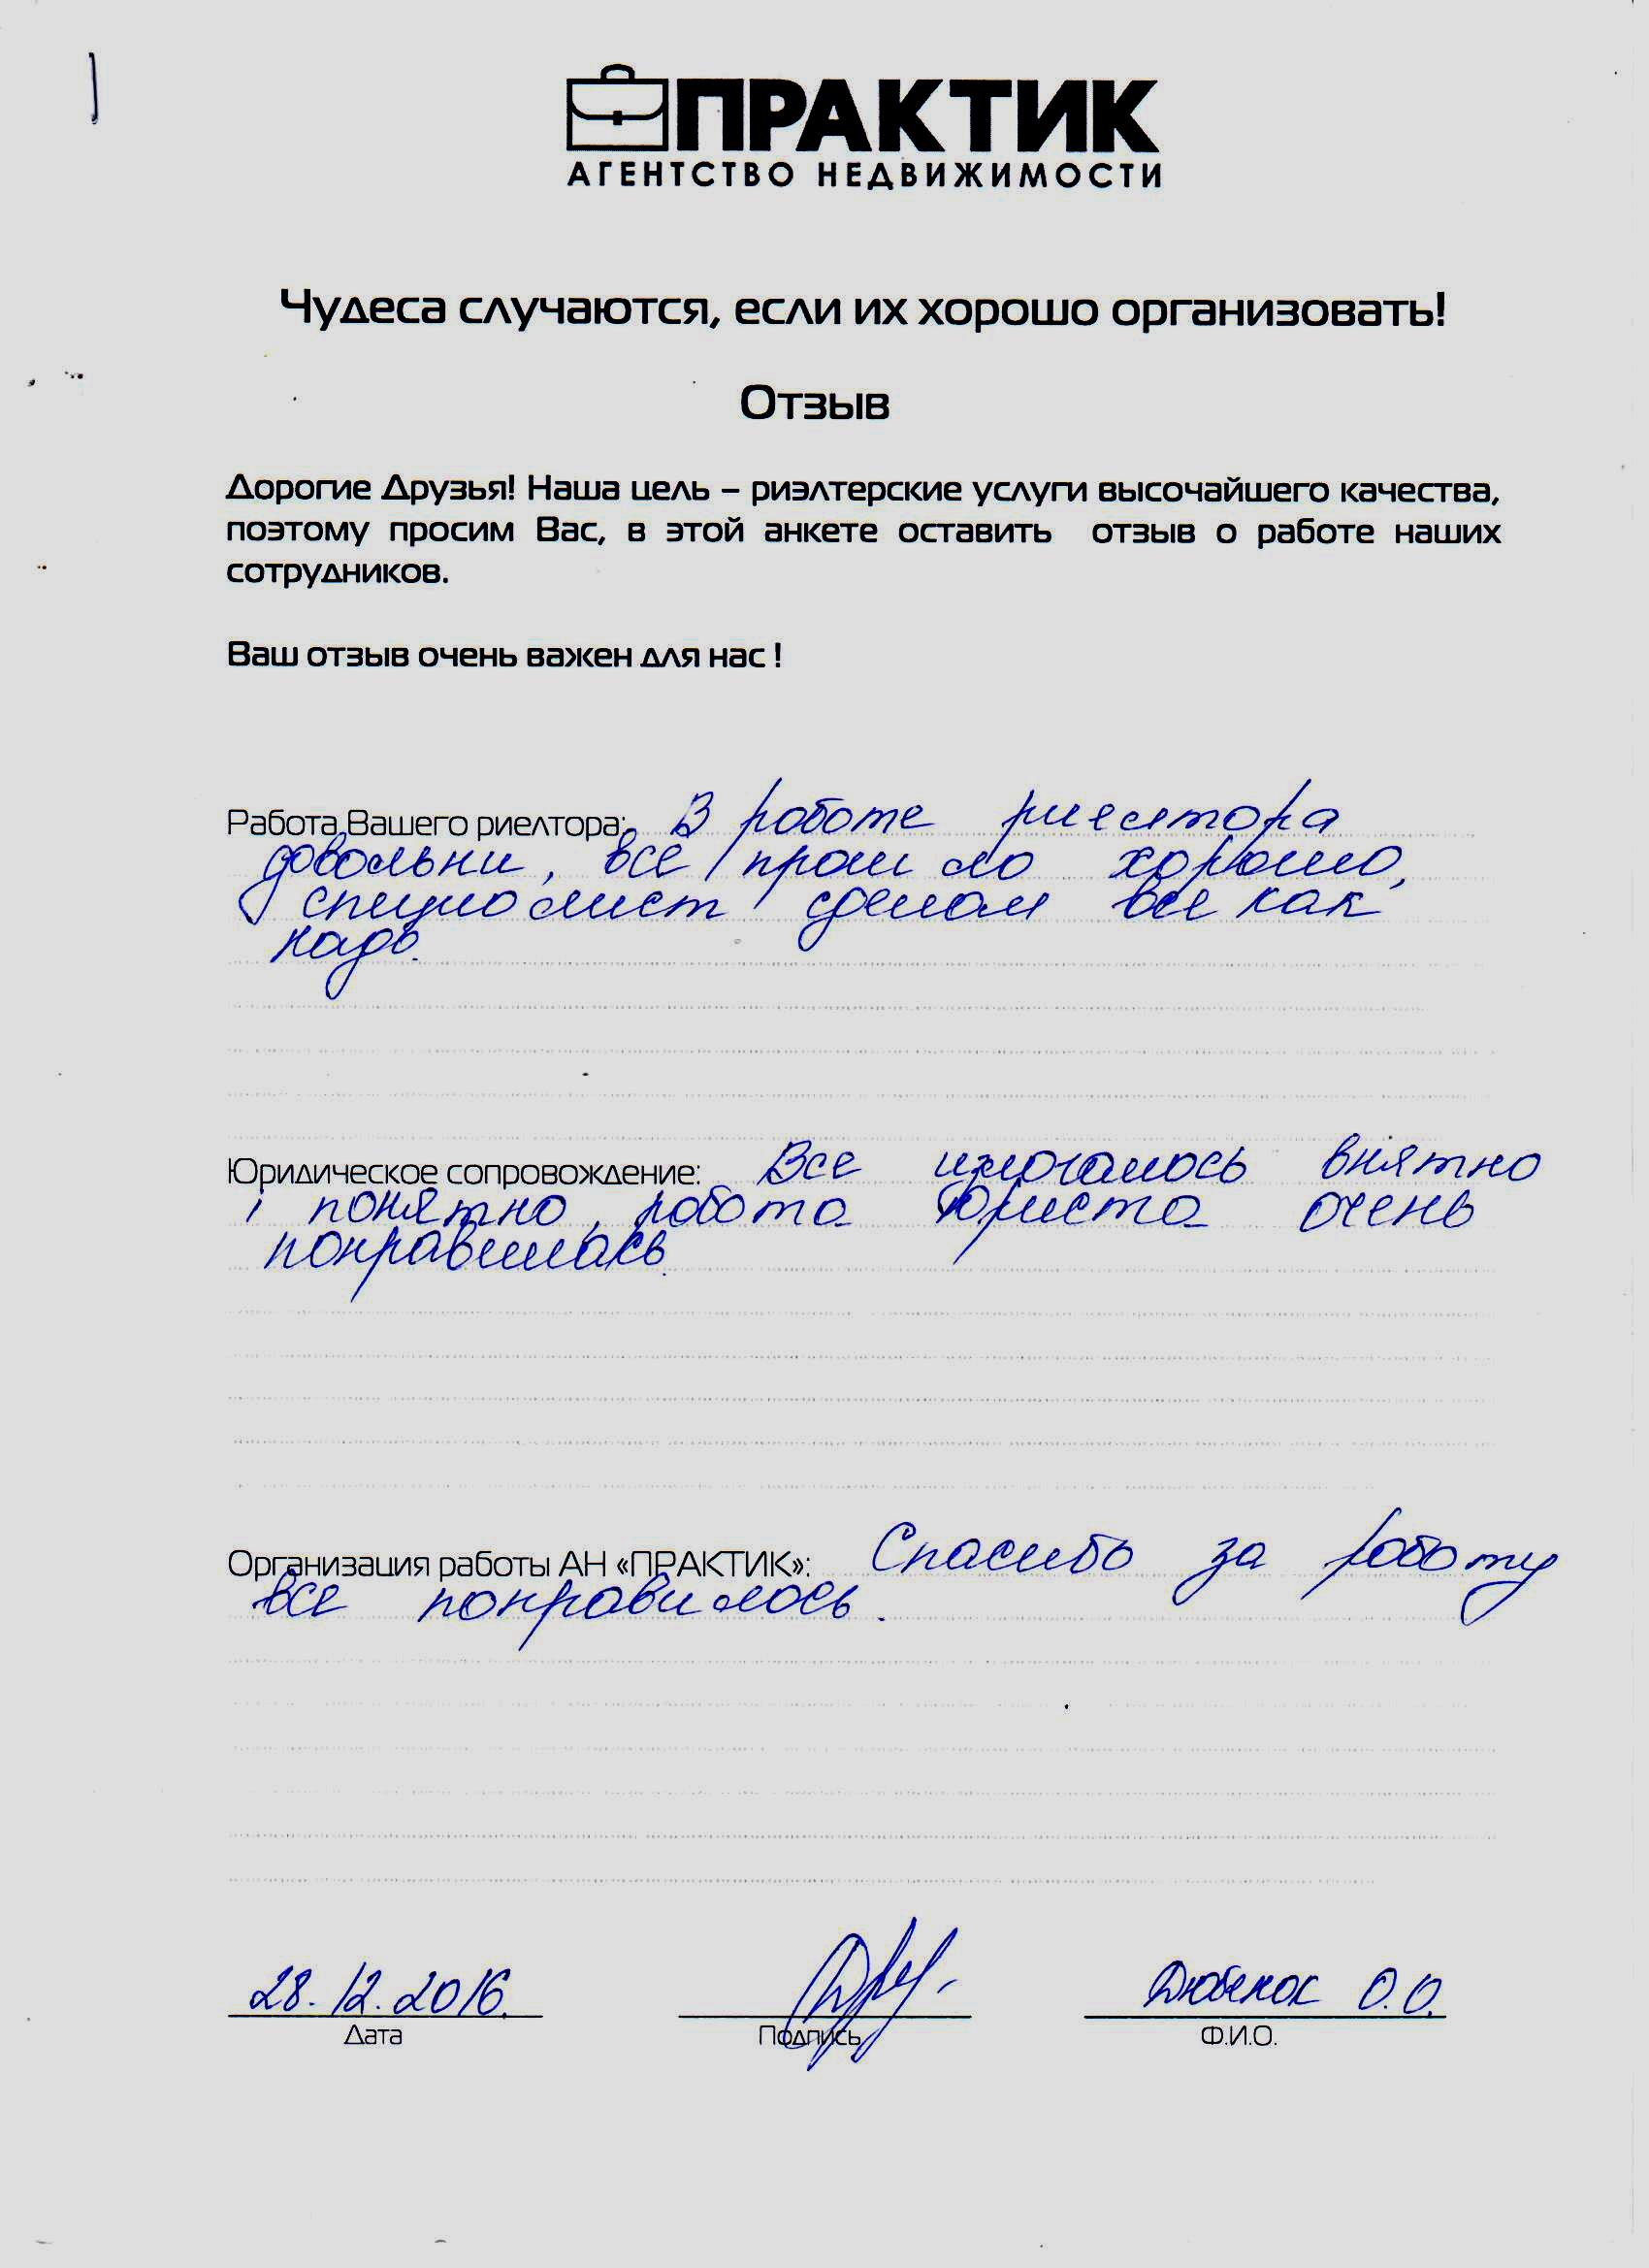 ПРАКТИК
АГЕНТСТВО НЕДВИЖИМОСТИ
Чудеса случаются, если их хорошо организовать!
Отзыв
Дорогие Друзья! Наша цель – риэлтерские услуги высочайшего качества,
поэтому просим Вас, в этой анкете оставить отзыв о работе наших
сотрудников.
Ваш отзыв очень важен для нас !
Работа Вашего риелтора: В работе риелтора
довольни, все прошло хорошо,
специалист сделал все как
надо.
Юридическое сопровождение: Все излогалось внятно
і понятно, работа юриста очень
понравилась.
Организация работы АН «ПРАКТИК»: Спасибо за работу
все понравилось.
28.12.2016.
Дата
Подпись
О.О.
Ф.И.О.